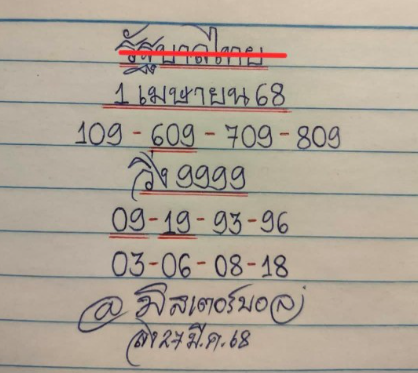 รัฐบาลไทย
1 เมษายน 68
109-609-709-809
วิ่ง 9999
09-19-93-96
03-06-08-18
@ มิสเตอร์บอล
ลง 27 มี.ค. 68